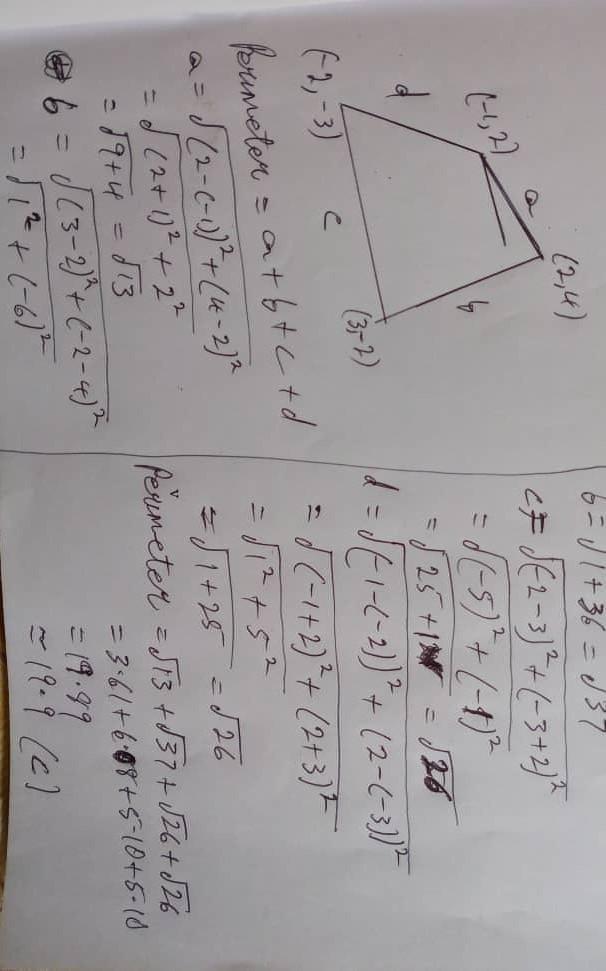 (-1,2)
a
(2,4)
d
b
(-2,-3)
c
(3,-2)
Perimeter = a + b + c + d
a = √(2-(-1))² + (4-2)²
= √(2+1)² + 2²
= √9+4 = √13
b = √(3-2)² + (-2-4)²
= √1² + (-6)²
b = √1 + 36 = √37
c = √(-2-3)² + (-3+2)²
= √(-5)² + (-1)²
= √25 + 1 = √26
d = √(-1-(-2))² + (2-(-3))²
= √(-1+2)² + (2+3)²
= √1² + 5²
= √1 + 25 = √26
Perimeter = √13 + √37 + √26 + √26
= 3.61 + 6.08 + 5.10 + 5.10
= 19.89
≈ 19.9 (C)